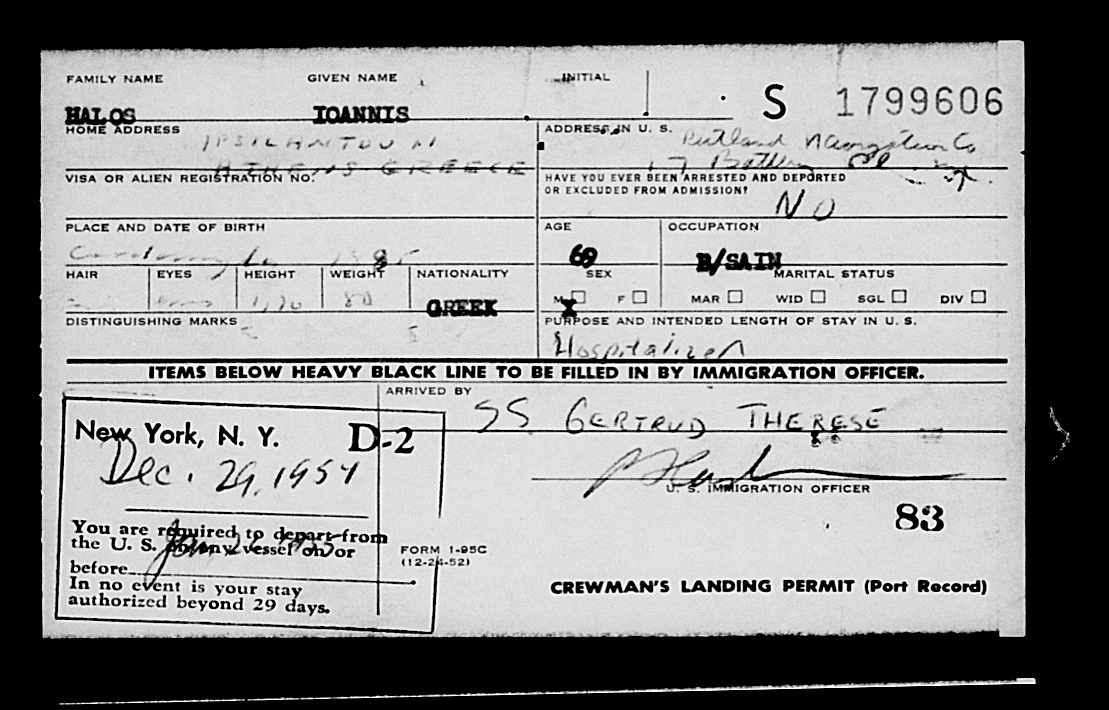 FAMILY NAME GIVEN NAME INITIAL
S 1799606
HALOS IOANNIS
HOME ADDRESS
IPSILANTOU
ATHENS GREECE
ADDRESS IN U. S.
Rutland Navigation Co
17 Battery Pl.
VISA OR ALIEN REGISTRATION NO.
HAVE YOU EVER BEEN ARRESTED AND DEPORTED
OR EXCLUDED FROM ADMISSION?
NO
PLACE AND DATE OF BIRTH
AGE
69
OCCUPATION
B/SAIN
HAIR EYES HEIGHT WEIGHT NATIONALITY
1,70 80 GREEK
SEX
M X F
MARITAL STATUS
MAR WID SGL DIV
DISTINGUISHING MARKS
PURPOSE AND INTENDED LENGTH OF STAY IN U. S.
Hospitalized
ITEMS BELOW HEAVY BLACK LINE TO BE FILLED IN BY IMMIGRATION OFFICER.
ARRIVED BY
SS GERTRUD THERESE
U. S. IMMIGRATION OFFICER
83
New York, N. Y. D-2
Dec. 29, 1954
You are required to depart from
the U. S. on any vessel on or
before
In no event is your stay
authorized beyond 29 days.
FORM I-95C
(12-24-52)
CREWMAN'S LANDING PERMIT (Port Record)